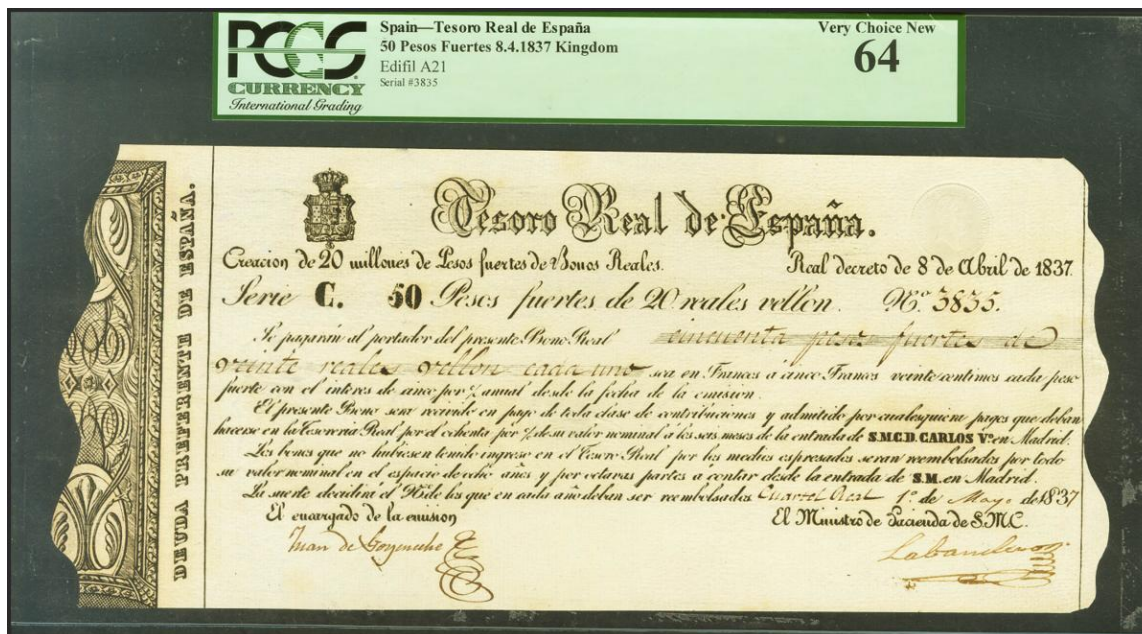 PCGS
CURRENCY
International Grading
Spain—Tesoro Real de España
50 Pesos Fuertes 8.4.1837 Kingdom
Edifil A21
Serial #3835
Very Choice New
64
DEUDA PREFERENTE DE ESPAÑA.
Tesoro Real de España.
Creacion de 20 millones de Pesos fuertes de Bonos Reales. Real decreto de 8 de Abril de 1837
Serie C. 50 Pesos fuertes de 20 reales vellon. Nº 3835.
Se pagarán al portador del presente Bono Real cincuenta pesos fuertes de
veinte reales vellon cada uno sea en Francos a cinco Francos veinte centimos cada peso
fuerte con el interes de cinco por % anual desde la fecha de la emision.
El presente Bono será recivido en pago de toda clase de contribuciones y admitido por cualesquiera pagos que deban
hacerse en la Tesoreria Real por el ochenta por % de su valor nominal á los seis meses de la entrada de S.M.C.D. CARLOS Vº en Madrid.
Los bonos que no hubiesen tenido ingreso en el Tesoro Real por los medios espresados seran reembolsados por todo
su valor nominal en el espacio de ocho años y por octavas partes a contar desde la entrada de S.M. en Madrid.
La suerte decidirá el Nº de los que en cada año deban ser reembolsados Cuartel Real 1º de Mayo de 1837
El encargado de la emision El Ministro de Hacienda de S.M.C.
Juan de Goyeneche Labandero